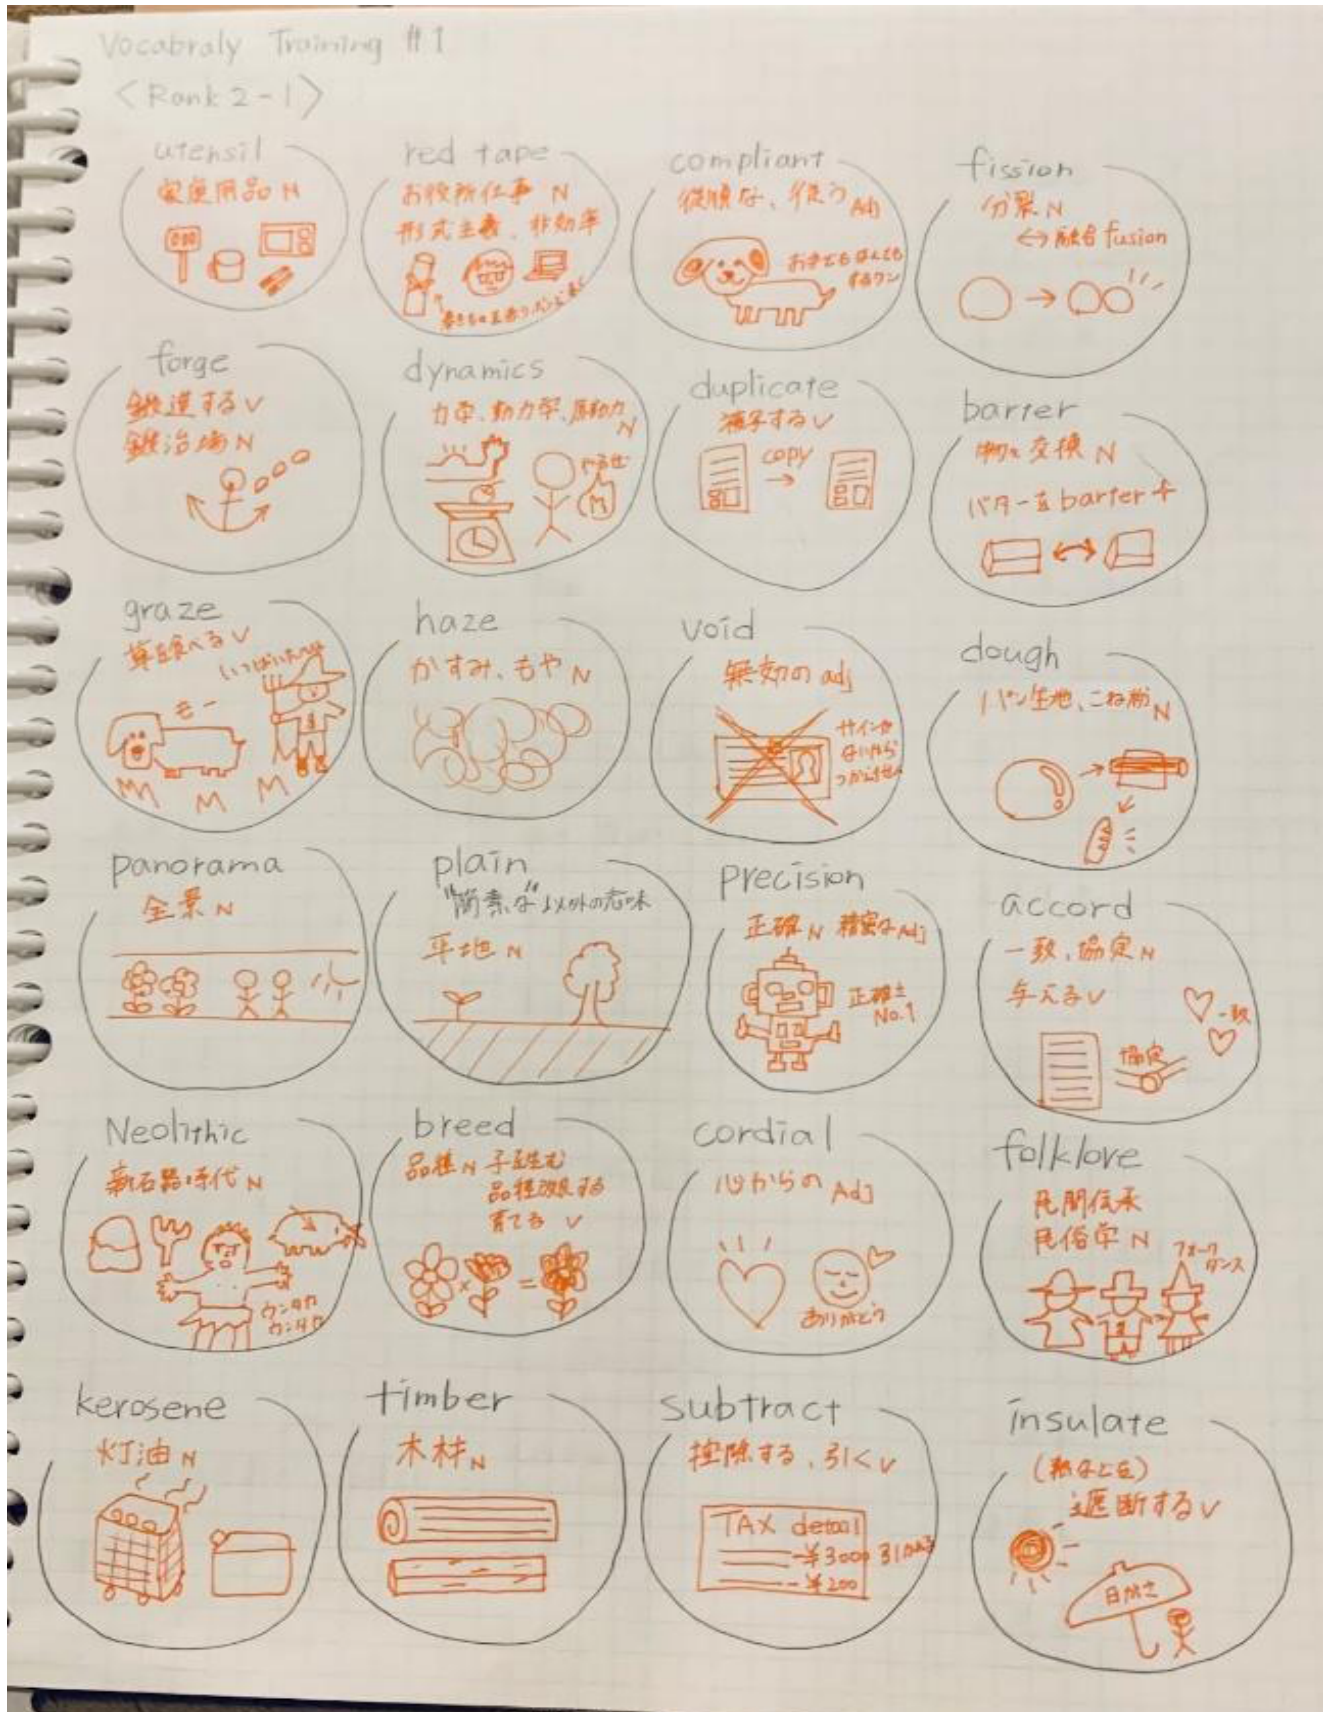 Vocabraly Training #1
<Rank 2-1>
utensil
家庭用品 N
red tape
お役所仕事 N
形式主義、非効率
compliant
従順な、従う Adj
おすわりもなんでも
するワン
fission
分裂 N
⟷ 融合 fusion
forge
鍛造する V
鍛冶場 N
dynamics
力学、動力学、原動力
N
やるぜ
M
duplicate
複写する V
copy
barter
物々交換 N
バターをbarter
graze
草を食べる V
いっぱいたべな
モー
haze
かすみ、もや N
void
無効の adj
サインが
ないから
つかえません
dough
パン生地、こね粉 N
panorama
全景 N
plain
"簡素な"以外の意味
平地 N
precision
正確 N 精密な Adj
正確さ
No.1
accord
一致、協定 N
与える V
一致
協定
Neolithic
新石器時代 N
ウンタカ
ウンタカ
breed
品種 N 子を生む
品種改良する
育てる V
cordial
心からの Adj
ありがとう
folklore
民間伝承
民俗学 N
フォーク
ダンス
kerosene
灯油 N
timber
木材 N
subtract
控除する、引く V
TAX detail
-¥3000
-¥200
insulate
(熱などを)
遮断する V
日がさ